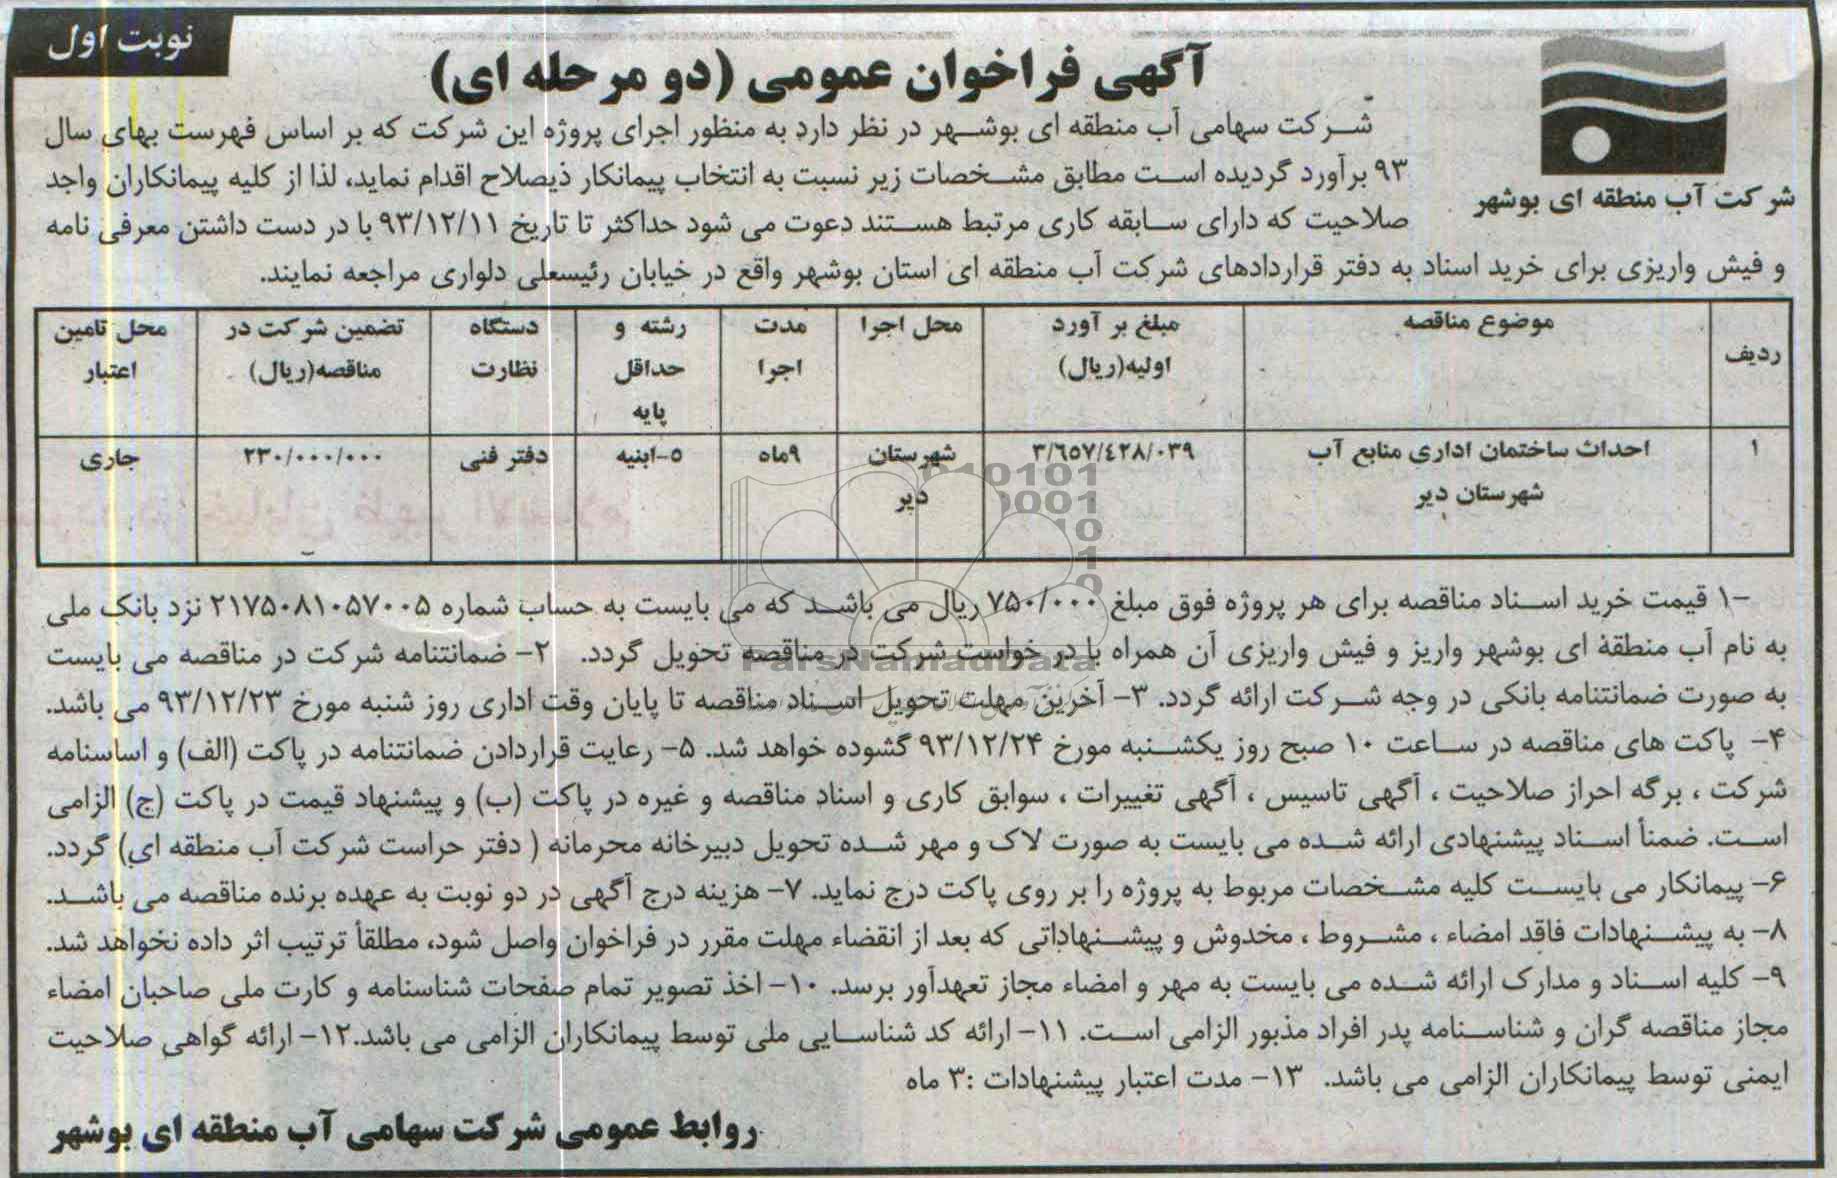 نوبت اول
آگهی فراخوان عمومی (دو مرحله ای)
شرکت آب منطقه ای بوشهر
شرکت سهامی آب منطقه ای بوشهر در نظر دارد به منظور اجرای پروژه این شرکت که بر اساس فهرست بهای سال
۹۳ برآورد گردیده است مطابق مشخصات زیر نسبت به انتخاب پیمانکار ذیصلاح اقدام نماید، لذا از کلیه پیمانکاران واجد
صلاحیت که دارای سابقه کاری مرتبط هستند دعوت می شود حداکثر تا تاریخ ۹۳/۱۲/۱۱ با در دست داشتن معرفی نامه
و فیش واریزی برای خرید اسناد به دفتر قراردادهای شرکت آب منطقه ای استان بوشهر واقع در خیابان رئیسعلی دلواری مراجعه نمایند.
ردیف | موضوع مناقصه | مبلغ بر آورد اولیه(ریال) | محل اجرا | مدت اجرا | رشته و حداقل پایه | دستگاه نظارت | تضمین شرکت در مناقصه(ریال) | محل تامین اعتبار
۱ | احداث ساختمان اداری منابع آب شهرستان دیر | ۳/۶۵۷/۴۲۸/۰۳۹ | شهرستان دیر | ۹ماه | ۵-ابنیه | دفتر فنی | ۲۳۰/۰۰۰/۰۰۰ | جاری
۱- قیمت خرید اسناد مناقصه برای هر پروژه فوق مبلغ ۷۵۰/۰۰۰ ریال می باشد که می بایست به حساب شماره ۲۱۷۵۰۸۱۰۵۷۰۰۵ نزد بانک ملی
به نام آب منطقه ای بوشهر واریز و فیش واریزی آن همراه با در خواست شرکت در مناقصه تحویل گردد. ۲- ضمانتنامه شرکت در مناقصه می بایست
به صورت ضمانتنامه بانکی در وجه شرکت ارائه گردد. ۳- آخرین مهلت تحویل اسناد مناقصه تا پایان وقت اداری روز شنبه مورخ ۹۳/۱۲/۲۳ می باشد.
۴- پاکت های مناقصه در ساعت ۱۰ صبح روز یکشنبه مورخ ۹۳/۱۲/۲۴ گشوده خواهد شد. ۵- رعایت قراردادن ضمانتنامه در پاکت (الف) و اساسنامه
شرکت ، برگه احراز صلاحیت ، آگهی تاسیس ، آگهی تغییرات ، سوابق کاری و اسناد مناقصه و غیره در پاکت (ب) و پیشنهاد قیمت در پاکت (ج) الزامی
است. ضمناً اسناد پیشنهادی ارائه شده می بایست به صورت لاک و مهر شده تحویل دبیرخانه محرمانه ( دفتر حراست شرکت آب منطقه ای) گردد.
۶- پیمانکار می بایست کلیه مشخصات مربوط به پروژه را بر روی پاکت درج نماید. ۷- هزینه درج آگهی در دو نوبت به عهده برنده مناقصه می باشد.
۸- به پیشنهادات فاقد امضاء ، مشروط ، مخدوش و پیشنهاداتی که بعد از انقضاء مهلت مقرر در فراخوان واصل شود، مطلقاً ترتیب اثر داده نخواهد شد.
۹- کلیه اسناد و مدارک ارائه شده می بایست به مهر و امضاء مجاز تعهدآور برسد. ۱۰- اخذ تصویر تمام صفحات شناسنامه و کارت ملی صاحبان امضاء
مجاز مناقصه گران و شناسنامه پدر افراد مذبور الزامی است. ۱۱- ارائه کد شناسایی ملی توسط پیمانکاران الزامی می باشد.۱۲- ارائه گواهی صلاحیت
ایمنی توسط پیمانکاران الزامی می باشد. ۱۳- مدت اعتبار پیشنهادات :۳ ماه
روابط عمومی شرکت سهامی آب منطقه ای بوشهر
ParsNamadData